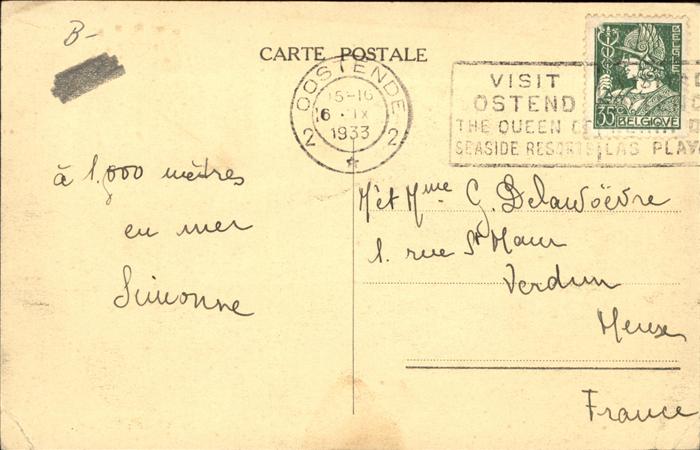 B-
CARTE POSTALE
OOSTENDE
15-16
6 · IX
1933
2 2
VISIT
OSTEND
THE QUEEN
SEASIDE RESORTS LAS PLAY
BELGIE
35c
BELGIQVE
à 1,000 mètres
en mer
Simonne
Mr et Mme G. Delavoëvre
1. rue St Maur
Verdun
Meuse
France